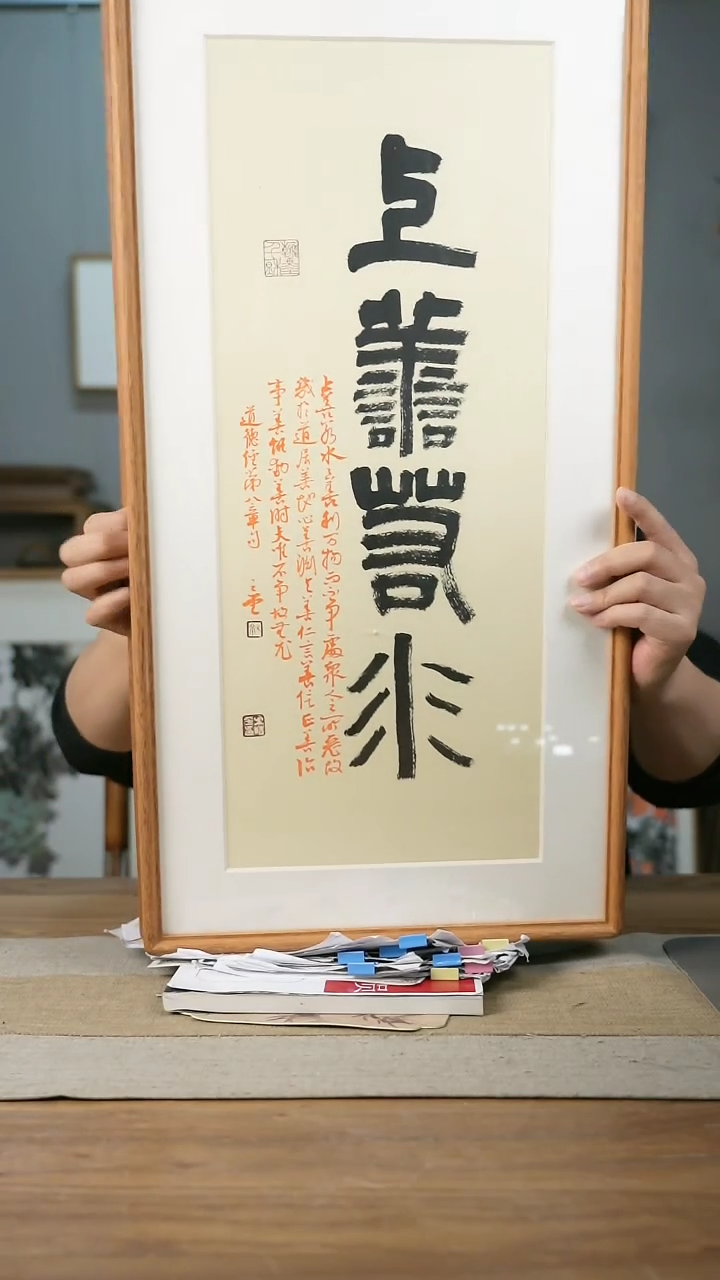 上善若水
上善若水水善利万物而不争處众人之所恶故
幾於道居善地心善渊与善仁言善信正善治
事善能動善时夫唯不争故无尤
道德经第八章句